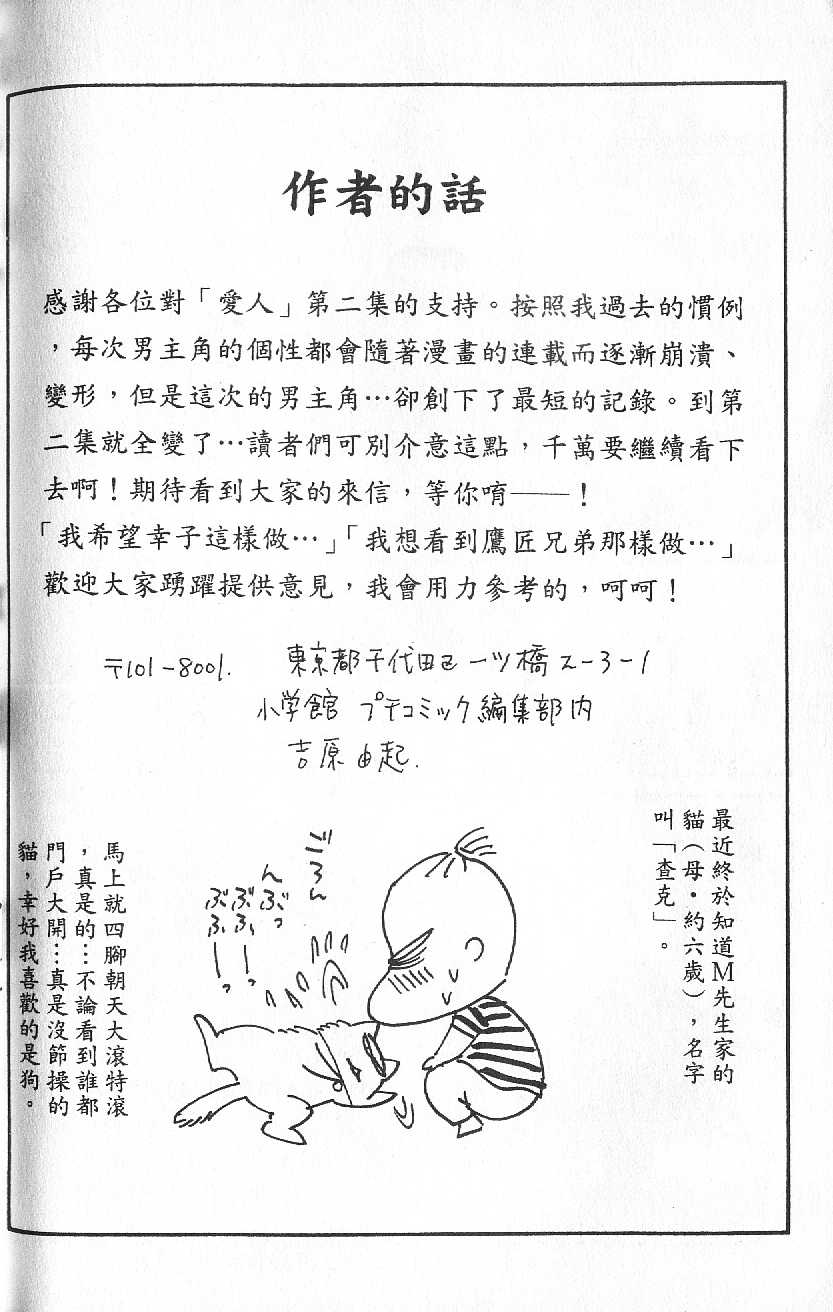 作者的話
感謝各位對「愛人」第二集的支持。按照我過去的慣例
，每次男主角的個性都會隨著漫畫的連載而逐漸崩潰、
變形，但是這次的男主角…卻創下了最短的記錄。到第
二集就全變了…讀者們可別介意這點，千萬要繼續看下
去啊！期待看到大家的來信，等你唷——！
「我希望幸子這樣做…」「我想看到鷹匠兄弟那樣做…」
歡迎大家踴躍提供意見，我會用力參考的，呵呵！
〒101-8001. 東京都千代田区一ツ橋2-3-1
小学館 プチコミック編集部内
吉原由起.
最近終於知道M先生家的
貓（母·約六歲），名字
叫「查克」。
ごろん
んぶっ
ぶぶぶ
馬上就四腳朝天大滾特滾
，真是的…不論看到誰都
門戶大開…真是沒節操的
貓，幸好我喜歡的是狗。